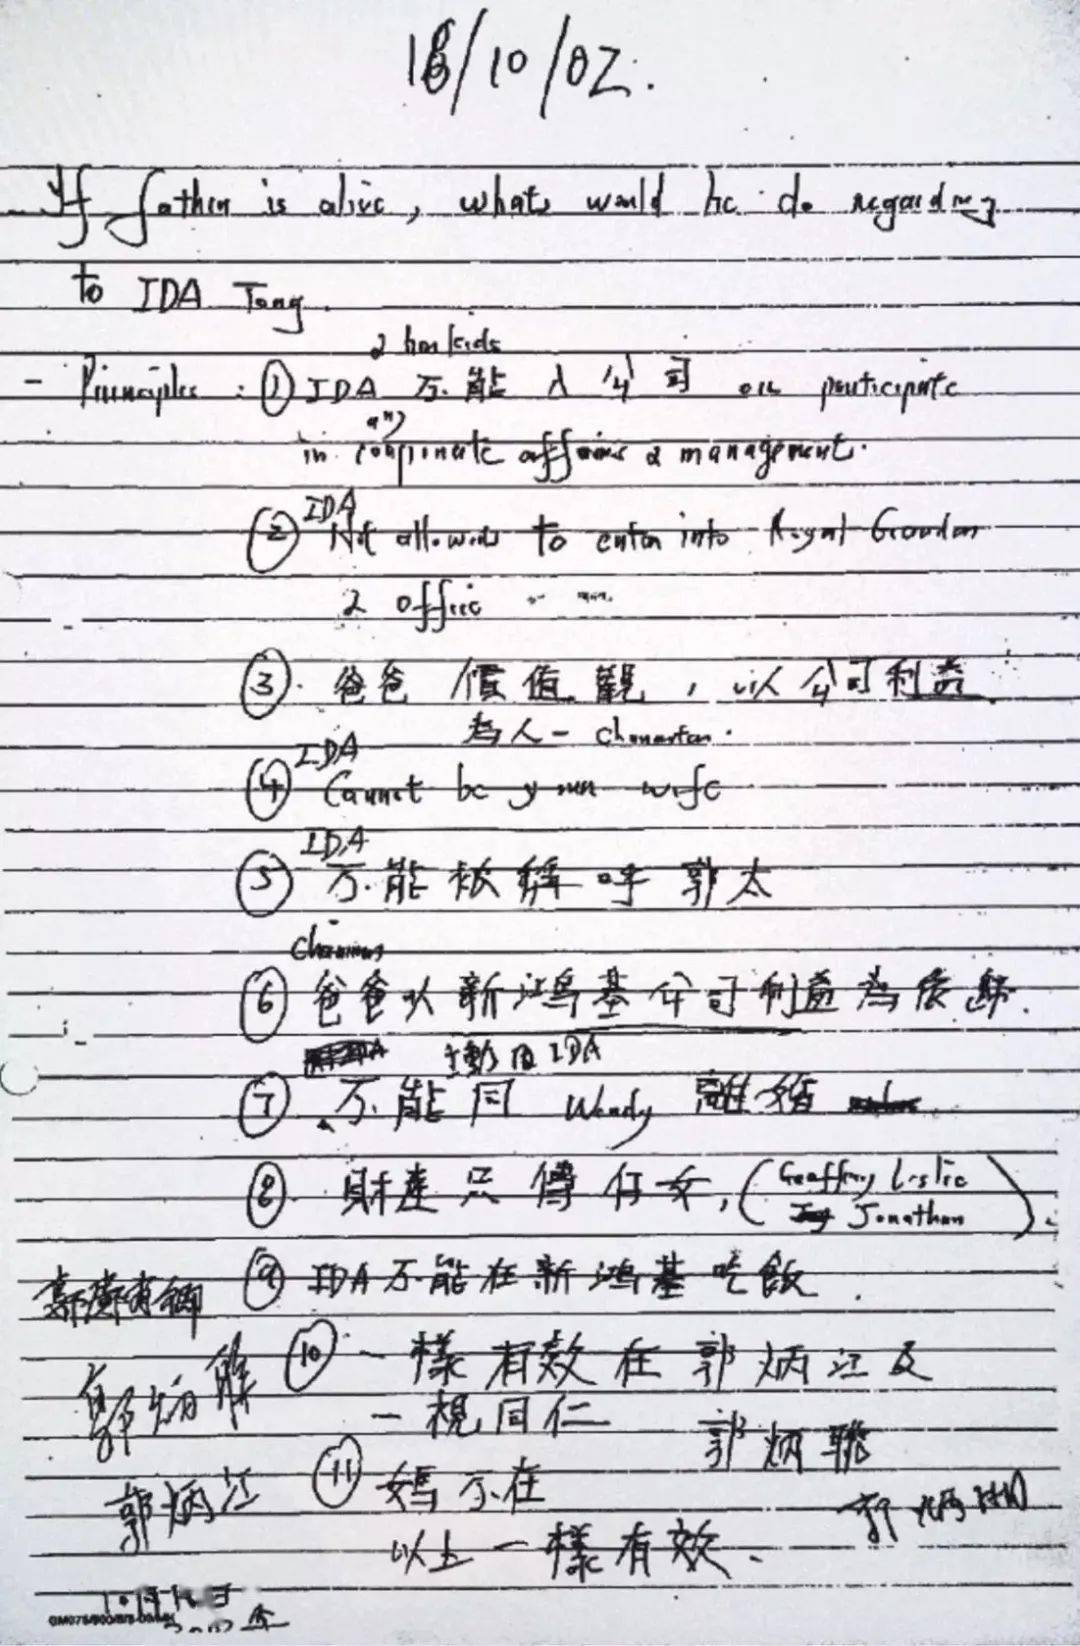 18/10/02.
If father is alive, whats would he do regarding
to IDA Tong.
2 her kids
- Principles : ① IDA 不能入公司 or participate
any
in corporate affairs & management.
IDA
② Not allowed to enter into Royal Garden
& office
③. 爸爸價值觀，以公司利益
為人- character.
IDA
④ Cannot be your wife
IDA
⑤ 不能被稱呼郭太
Chairman
⑥ 爸爸以新鴻基公司利益為依歸.
主動因IDA
⑦ 不能同 Wendy 離婚
⑧. 財產只傳仔女, (Geoffrey Leslie
Jonathan).
⑨ IDA不能在新鴻基吃飯.
⑩ 一樣有效在郭炳江及
一視同仁 郭炳聯
⑪ 媽不在
以上一樣有效.
郭鄺肖卿
郭炳勝
郭炳江
郭炳湘